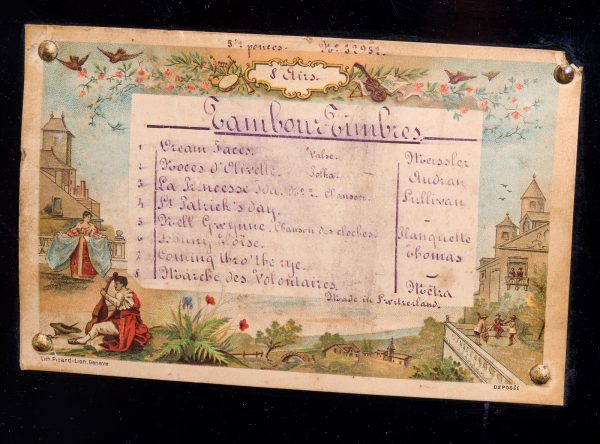 5½ pouces. No. 32952.
8 Airs.
Tambour Timbres
1 Dream Faces. Valse. Meissler
2 Noces d'Olivette. Polka. Audran
3 La Princesse Ida. No 2. Chanson. Sullivan
4 St Patrick's day. -
5 Nell Gwynne. Chanson des cloches. Planquette
6 Thomas
7 Coming thro' the rye. -
8 Marche des Volontaires. Métra
Made in Switzerland.
Lith. Picard-Lion, Genève
DÉPOSÉE